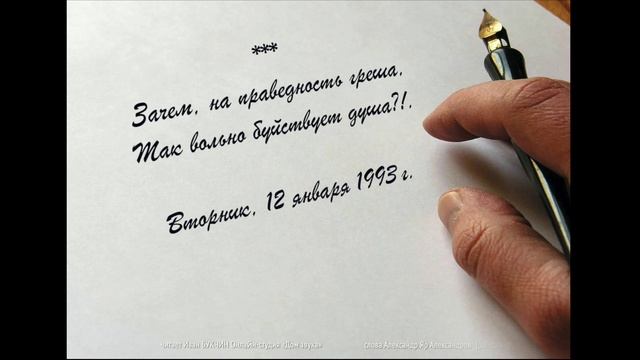 ***
Зачем, на праведность греша,
Так вольно буйствует душа?!.
Вторник, 12 января 1993 г.
читает Иван БУКНИН Онлайн-студия «Дом звука»
слова Александр Яр Александров